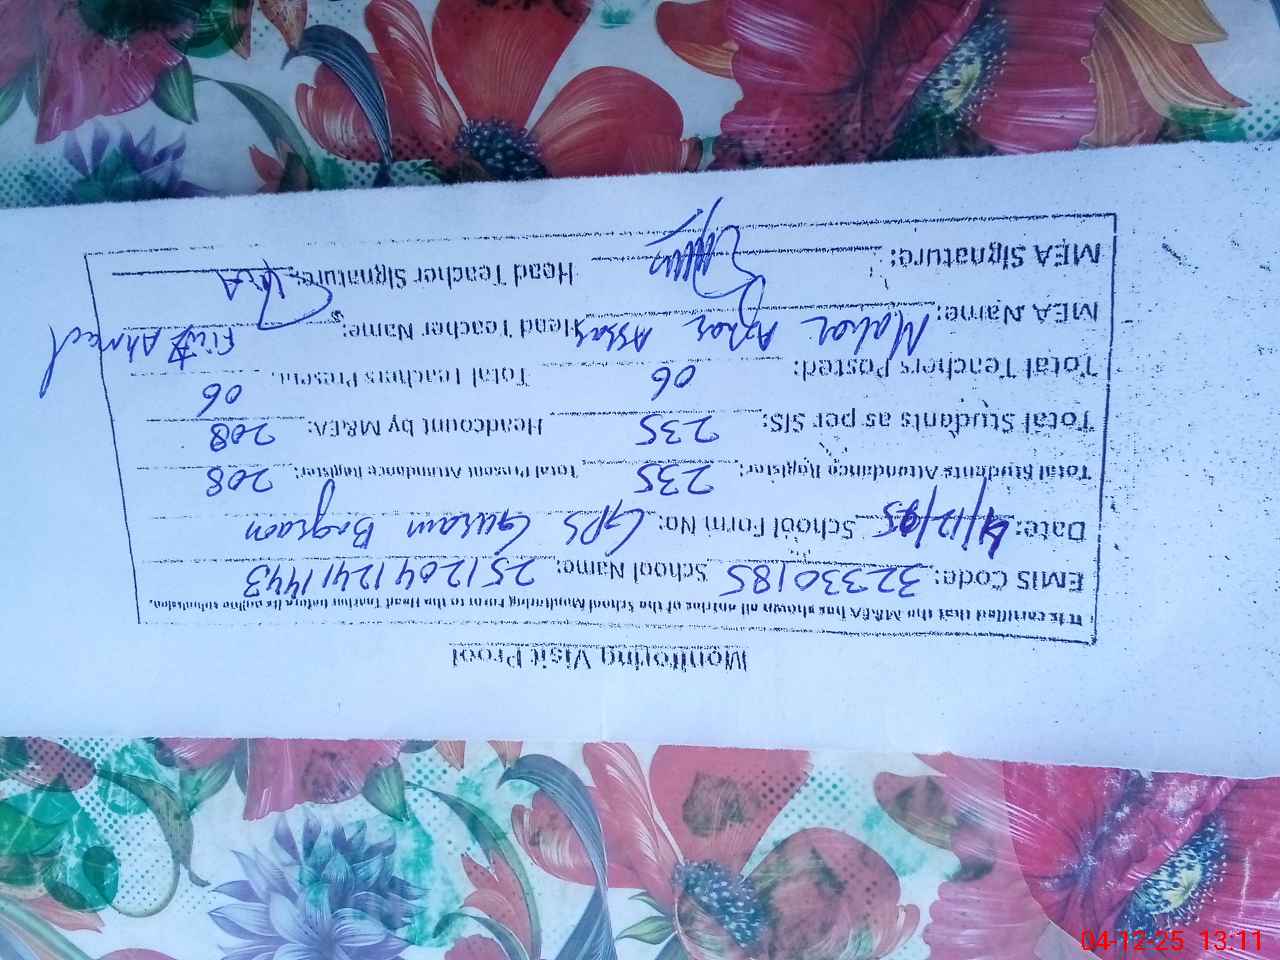 Monitoring Visit Proof
It is certified that the M&EA has shown all entries of the School Monitoring Form to the Head Teacher before its online submission.
EMIS Code: 32330185 School Name: 251204124117443
Date: 4/12/25 School Form No: GPS Gurain Bagraon
Total Students Attendance Register: 235 Total Present Attendance Register: 208
Total Students as per SIS: 235 Headcount by M&EA: 208
Total Teachers Posted: 06 Total Teachers Present: 06
MEA Name: Azhar Head Teacher Name: Ahmed
MEA Signature: Head Teacher Signature:
04-12-25 13:11